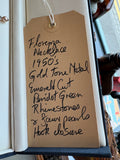 Florenza
Necklace
1950s
Gold Tone Metal
Emerald Cut
Peridot Green
Rhinestones
& Faux pearls
Hook closure